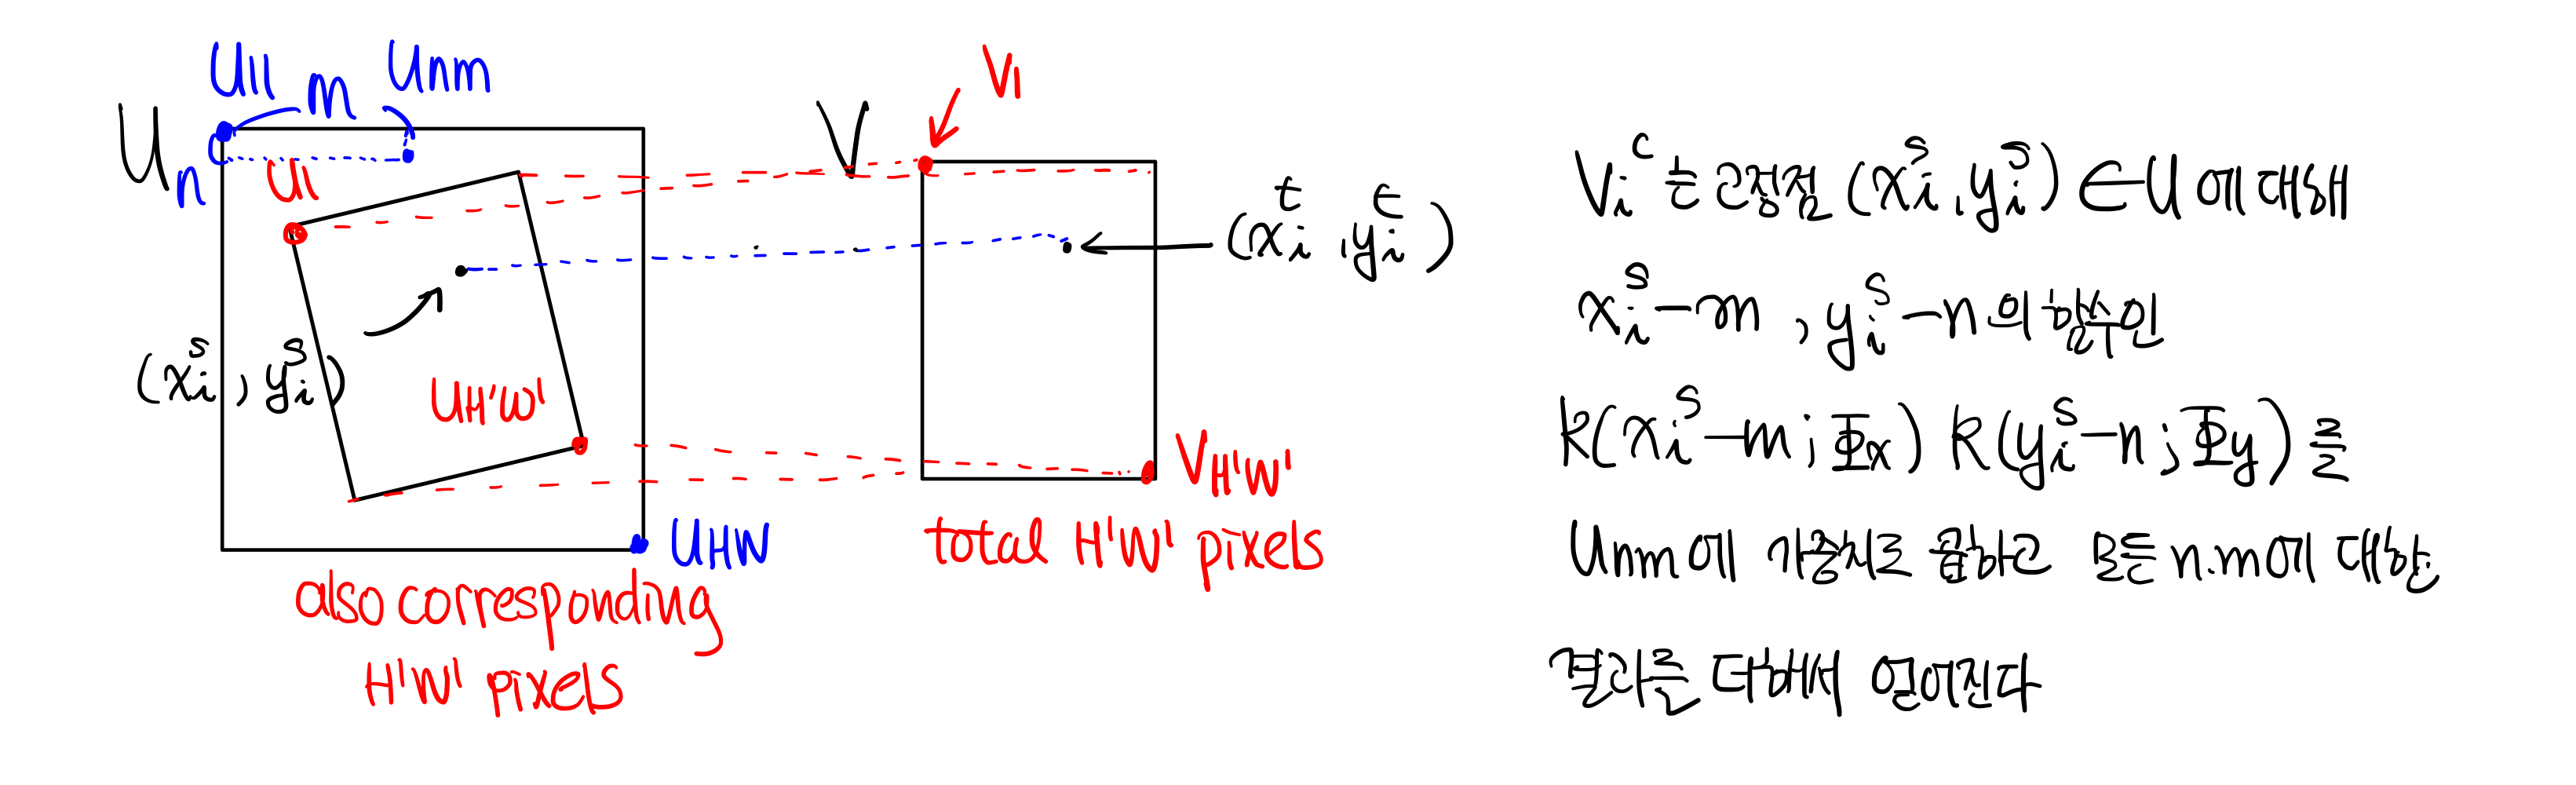 U
U11
m
Unm
n
U1
(x_i^s, y_i^s)
UH'W'
UHW
also corresponding
H'W' pixels
V
V1
(x_i^t, y_i^t)
VH'W'
total H'W' pixels
V_i^c 는 고정점 (x_i^s, y_i^s) ∈ U 에 대해
x_i^s - m , y_i^s - n 의 함수인
k(x_i^s - m ; Φx) k(y_i^s - n ; Φy) 를
Unm에 가중치로 곱하고 모든 n.m에 대한
결과를 더해서 얻어진다